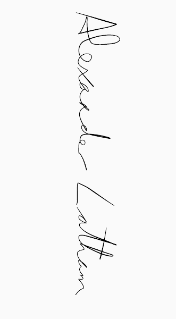 Alexander Latham